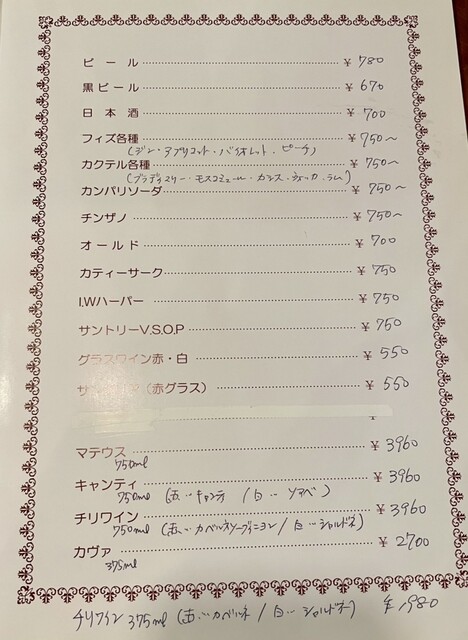 ビール ¥780
黒ビール ¥670
日本酒 ¥700
フィズ各種 ¥750〜
(ジン・アプリコット・バイオレット・ピーチ)
カクテル各種 ¥750〜
(ブラディメリー・モスコミュール・カシス・ウォッカ・ラム)
カンパリソーダ ¥750〜
チンザノ ¥750〜
オールド ¥700
カティーサーク ¥750
I.Wハーパー ¥750
サントリーV.S.O.P ¥750
グラスワイン赤・白 ¥550
(赤グラス) ¥550
¥
マテウス ¥3960
750ml
キャンティ ¥3960
750ml (赤…キャンテ / 白…ソアベ)
チリワイン ¥3960
750ml (赤…カベルネソーヴィニヨン / 白…シャルドネ)
カヴァ ¥2700
375ml
チリワイン 375ml (赤…カベルネ / 白…シャルドネー) ¥1980